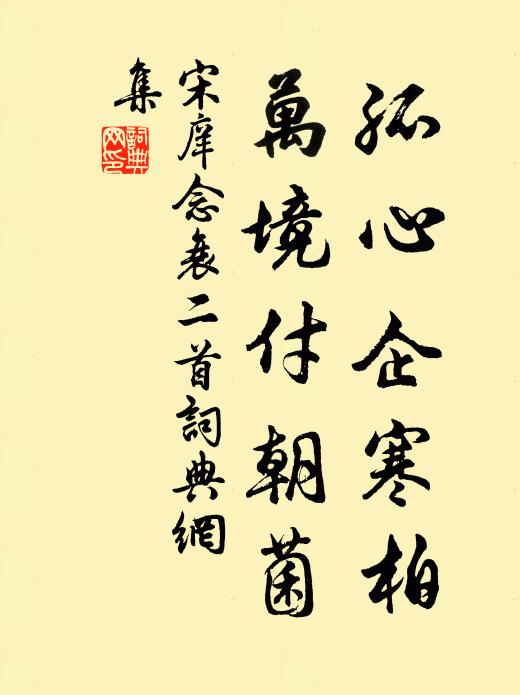 孤心企寒柏
萬境付朝菌
宋庠念衰二首詞典網
集
詞典網印